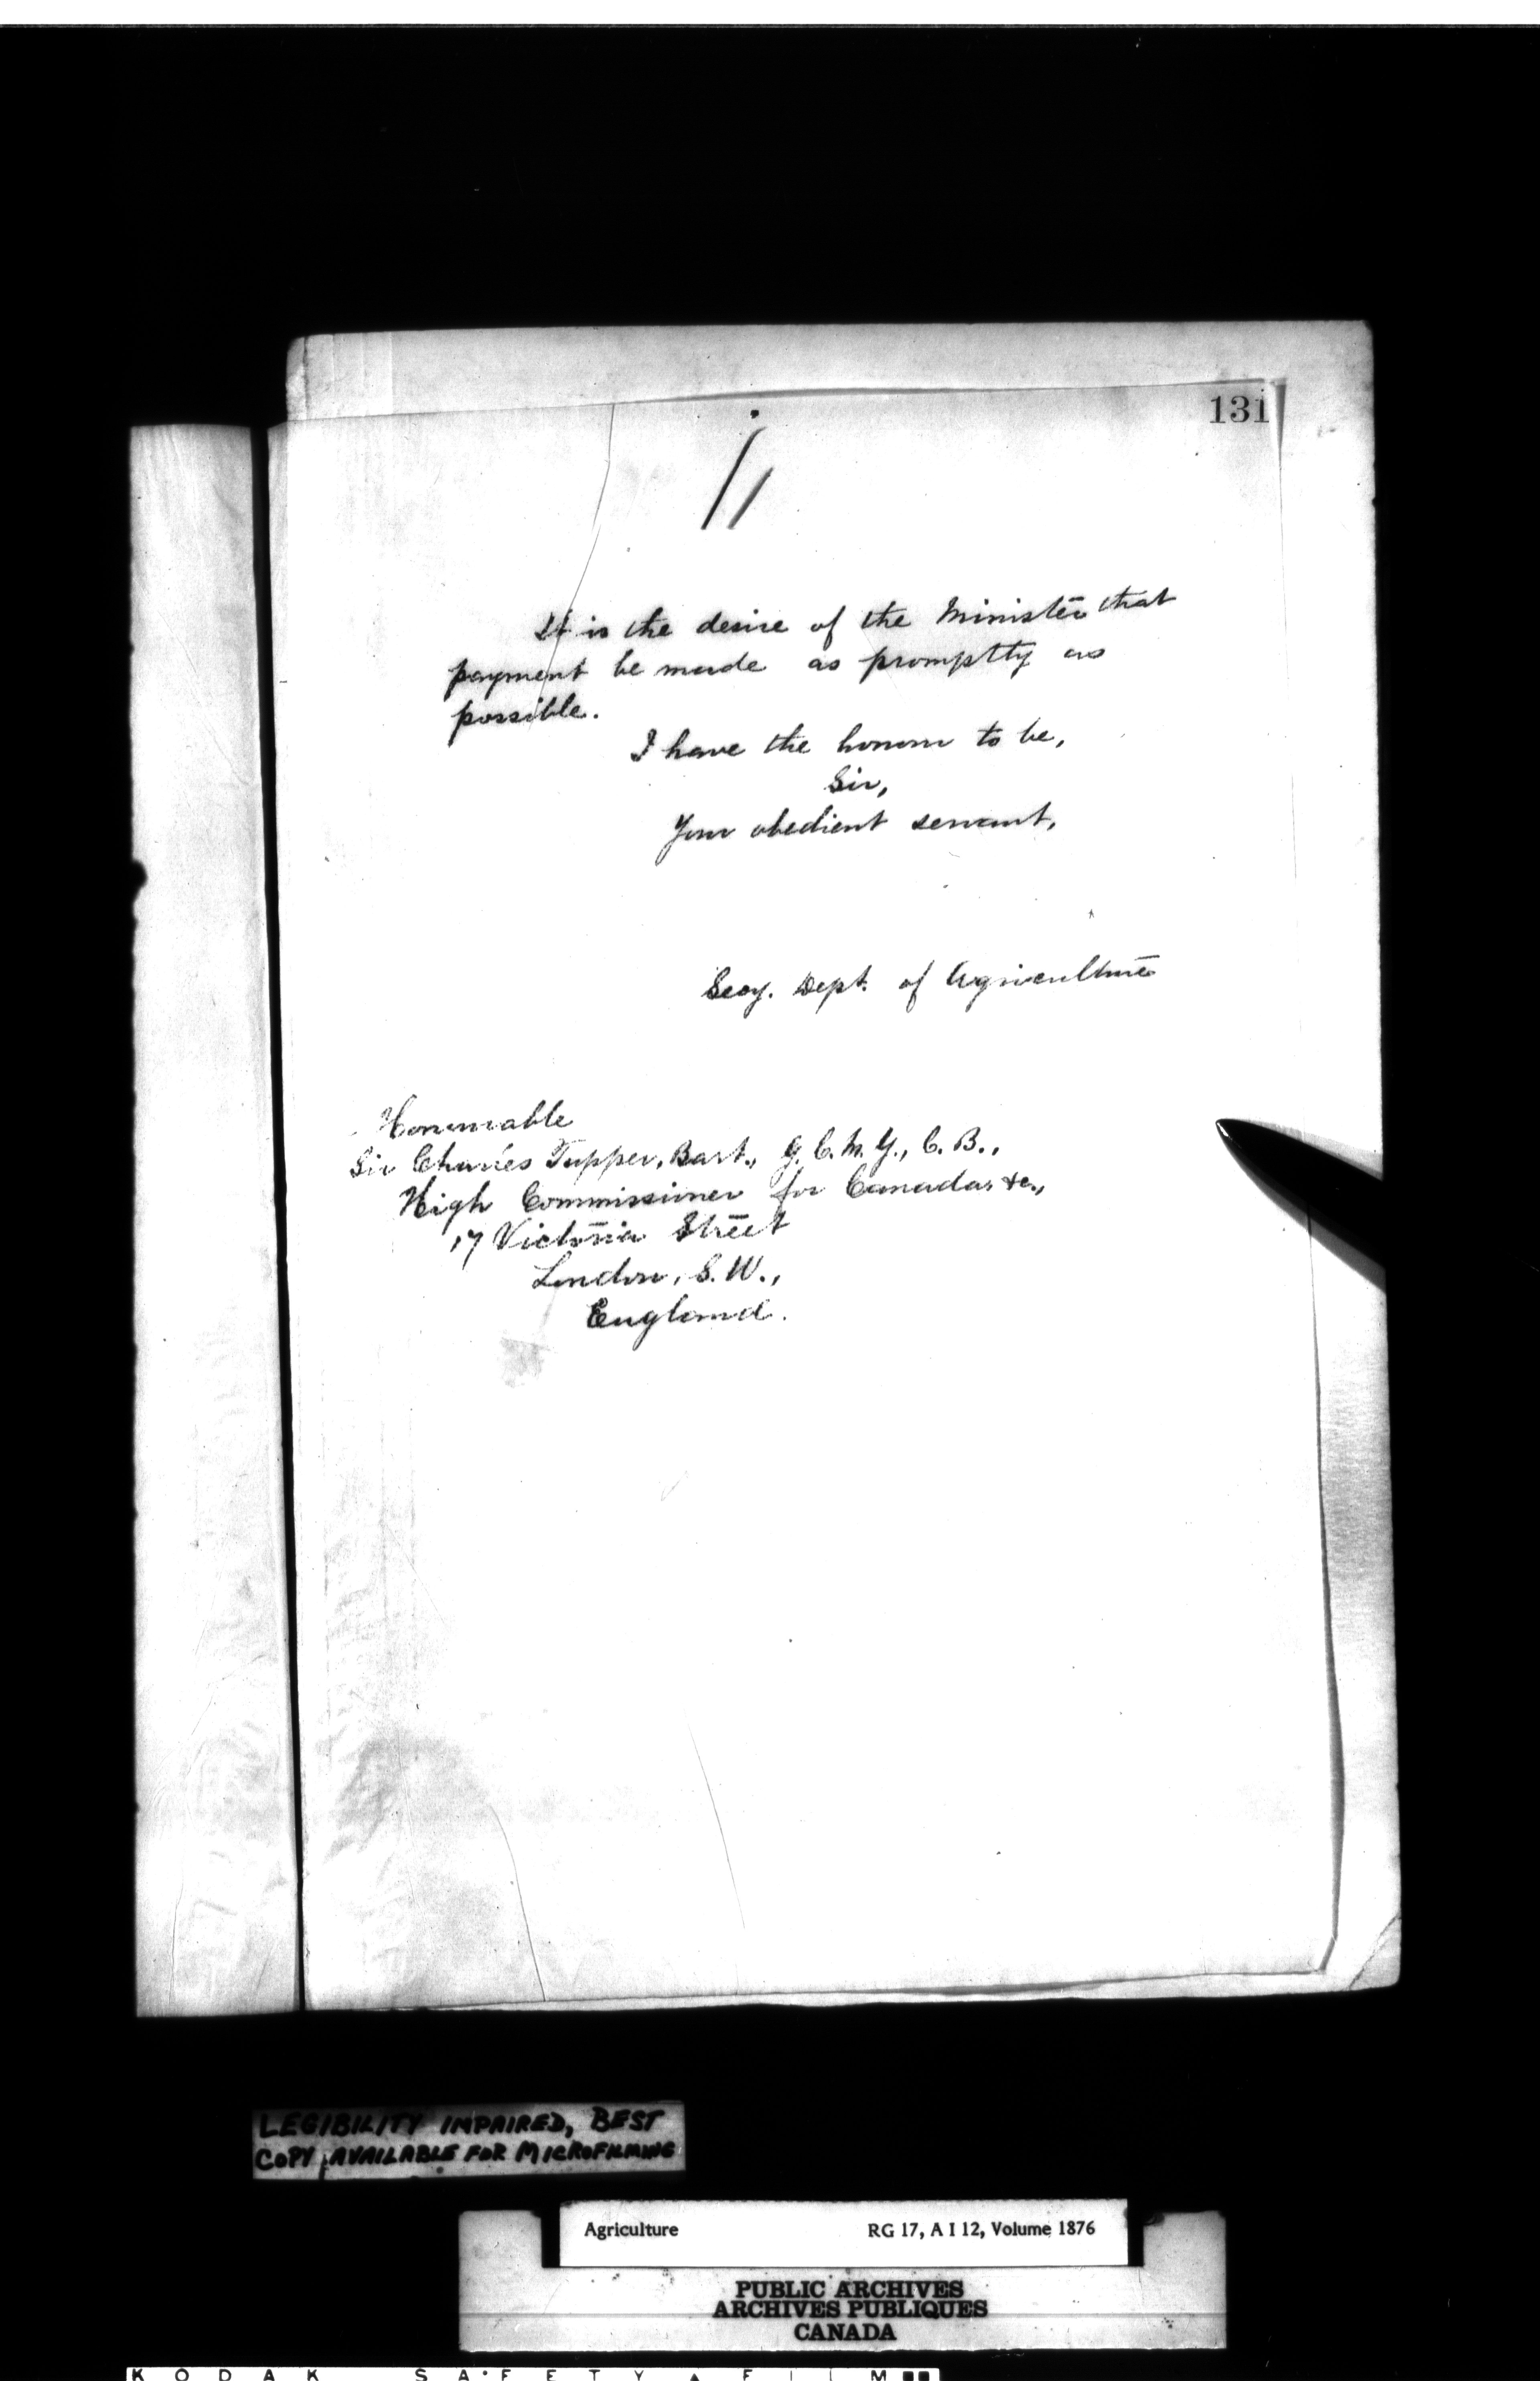 131
It is the desire of the Minister that
payment be made as promptly as
possible.
I have the honour to be,
Sir,
Your obedient servant,
Secy. Dept. of Agriculture
Honourable
Sir Charles Tupper, Bart., G.C.M.G., C.B.,
High Commissioner for Canada, &c.,
17 Victoria Street
London, S.W.,
England.
LEGIBILITY IMPAIRED, BEST
COPY AVAILABLE FOR MICROFILMING
Agriculture RG 17, A I 12, Volume 1876
PUBLIC ARCHIVES
ARCHIVES PUBLIQUES
CANADA
KODAK SAFETY FILM